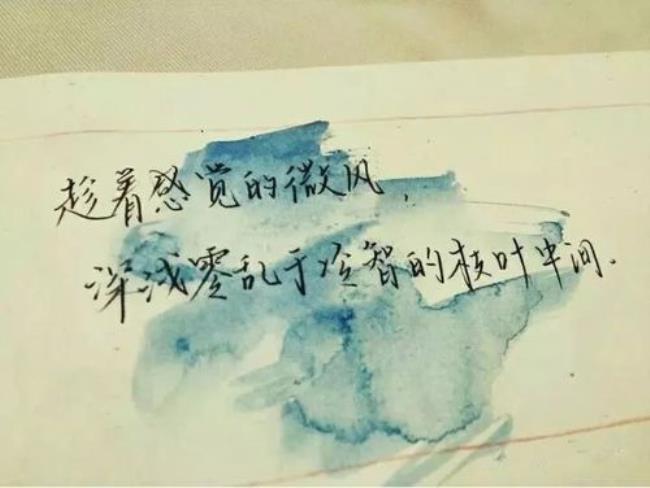 趁着感觉的微风,
深浅零乱于冷智的枝叶中间.